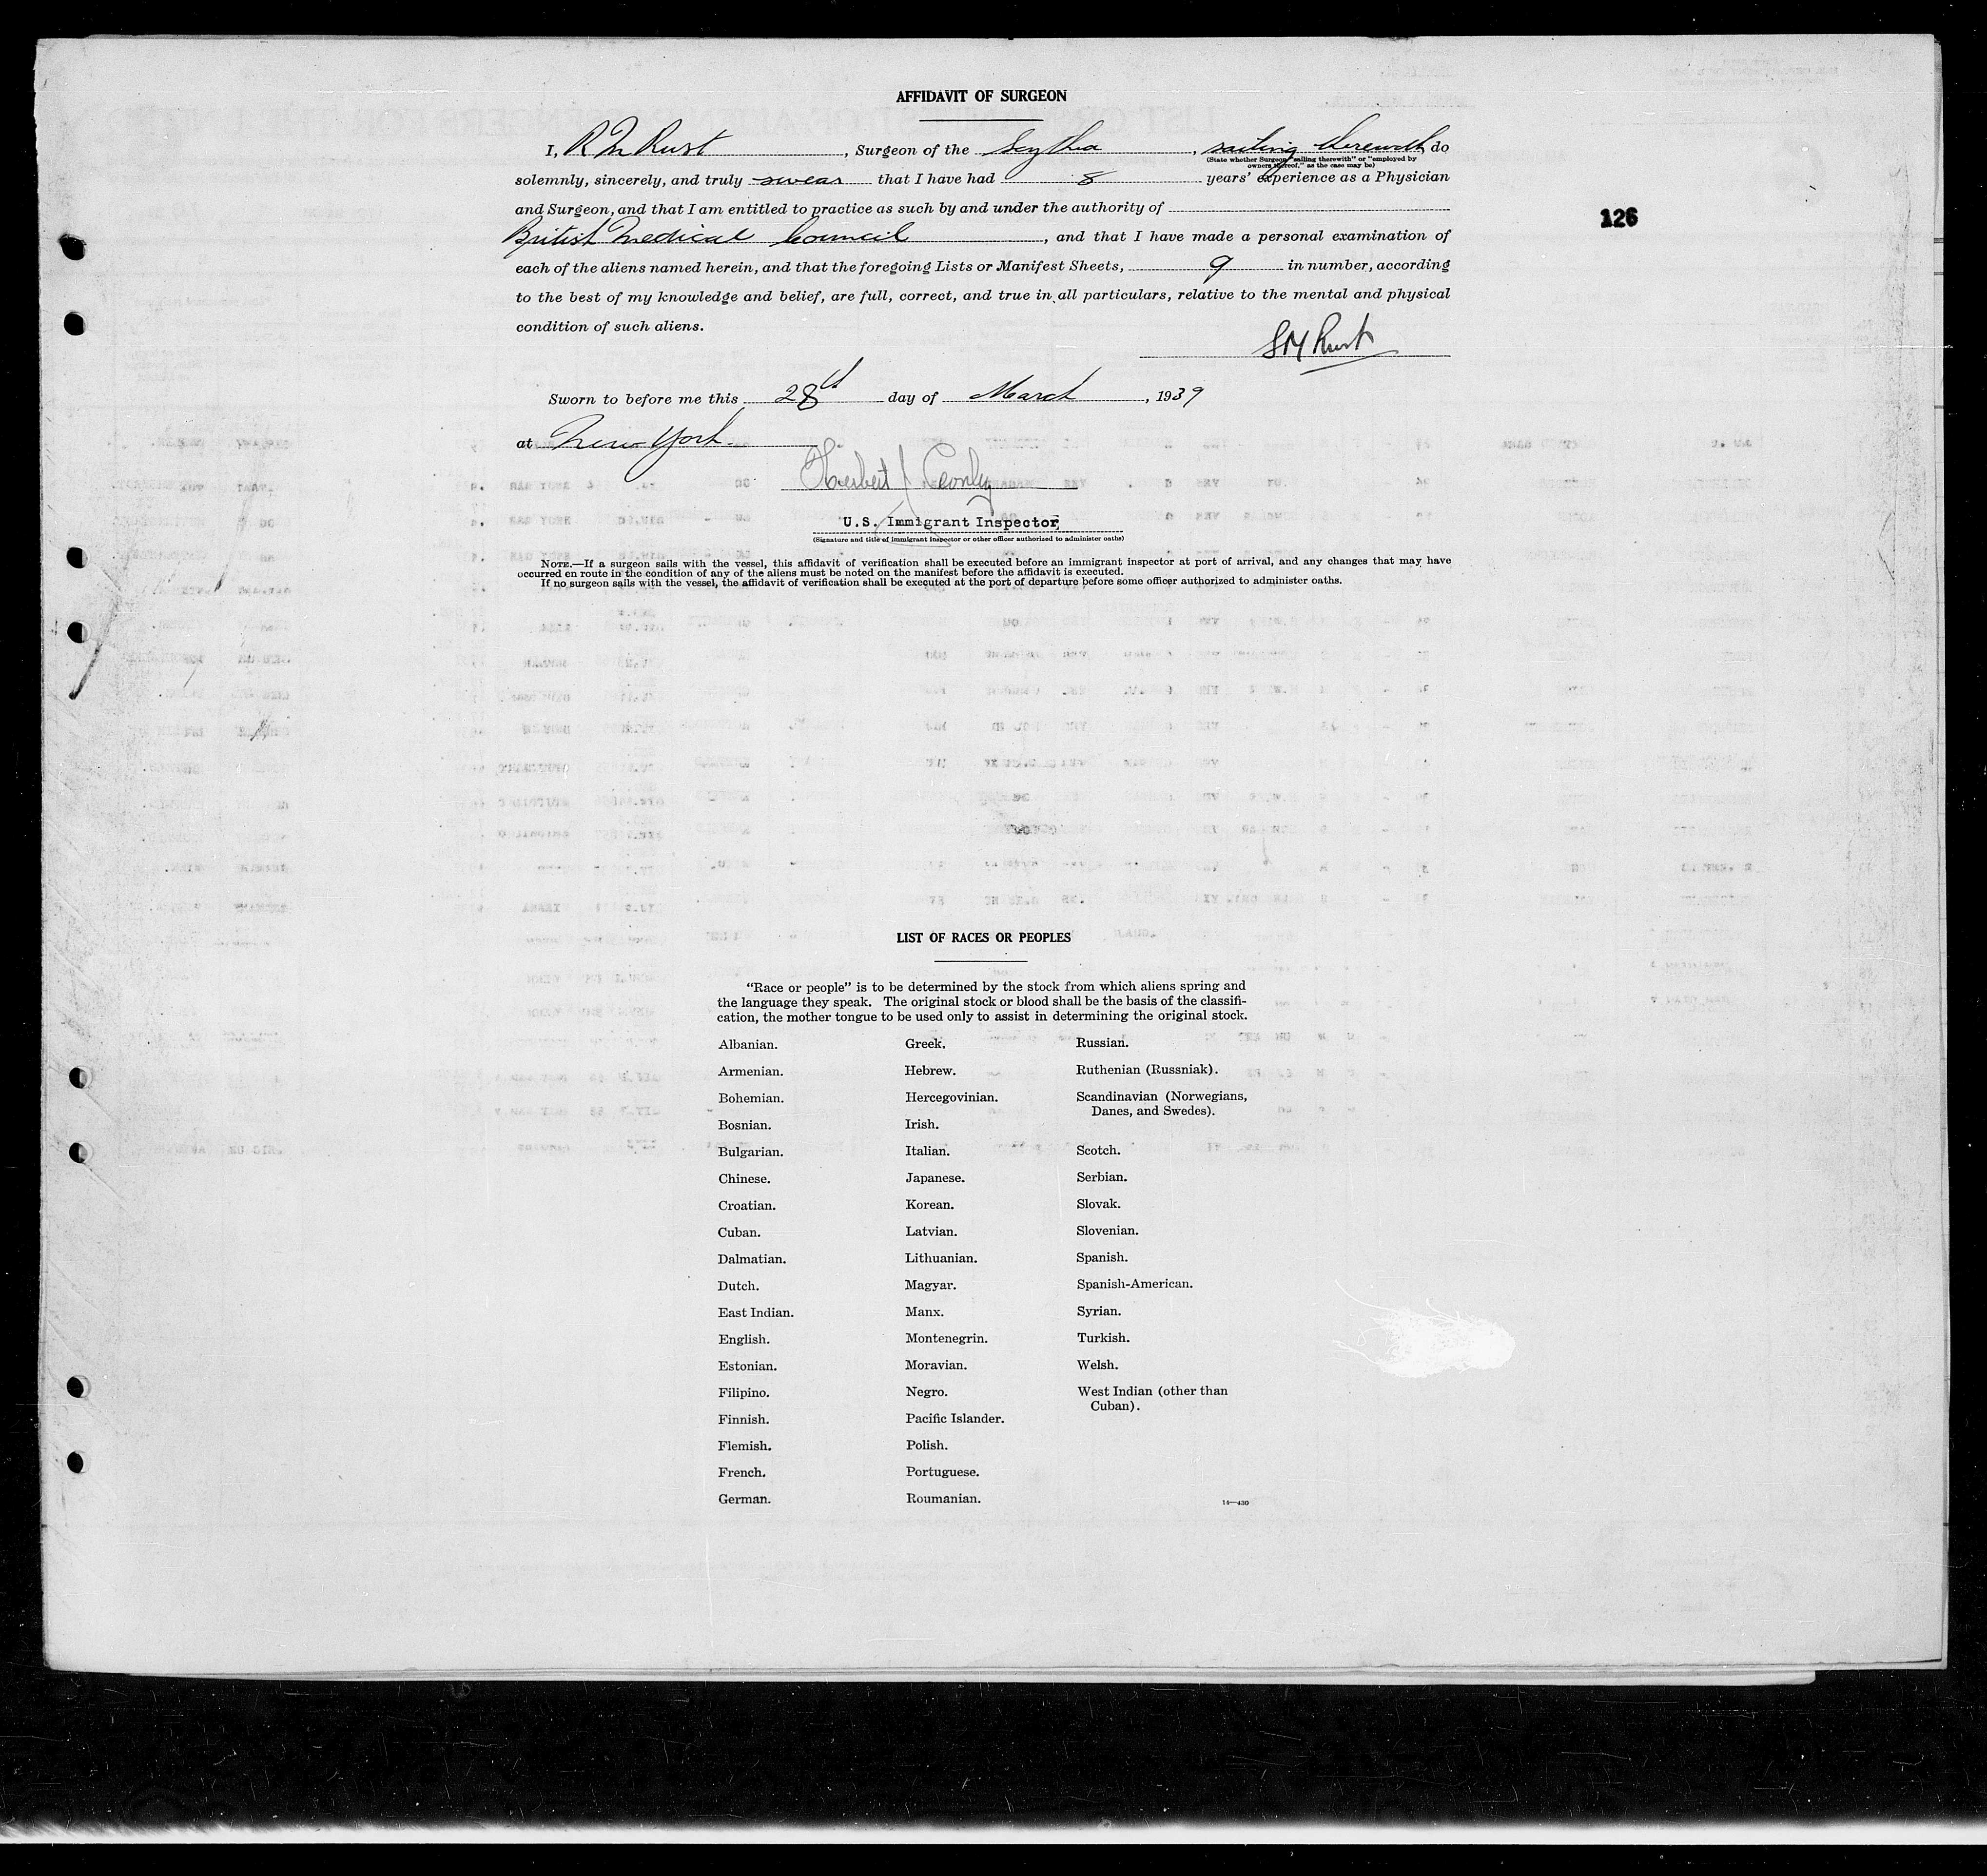 AFFIDAVIT OF SURGEON
I, R M Rust, Surgeon of the Scythia, sailing therewith do
(State whether Surgeon "sailing therewith" or "employed by
owners thereof," as the case may be)
solemnly, sincerely, and truly swear that I have had 8 years' experience as a Physician
and Surgeon, and that I am entitled to practice as such by and under the authority of
126
British Medical Council, and that I have made a personal examination of
each of the aliens named herein, and that the foregoing Lists or Manifest Sheets, 9 in number, according
to the best of my knowledge and belief, are full, correct, and true in all particulars, relative to the mental and physical
condition of such aliens.
Rust
Sworn to before me this 28th day of March, 1939
at New York.
Herbert J
U.S. Immigrant Inspector,
(Signature and title of immigrant inspector or other officer authorized to administer oaths)
NOTE.—If a surgeon sails with the vessel, this affidavit of verification shall be executed before an immigrant inspector at port of arrival, and any changes that may have
occurred en route in the condition of any of the aliens must be noted on the manifest before the affidavit is executed.
If no surgeon sails with the vessel, the affidavit of verification shall be executed at the port of departure before some officer authorized to administer oaths.
LIST OF RACES OR PEOPLES
"Race or people" is to be determined by the stock from which aliens spring and
the language they speak. The original stock or blood shall be the basis of the classifi-
cation, the mother tongue to be used only to assist in determining the original stock.
Albanian.
Armenian.
Bohemian.
Bosnian.
Bulgarian.
Chinese.
Croatian.
Cuban.
Dalmatian.
Dutch.
East Indian.
English.
Estonian.
Filipino.
Finnish.
Flemish.
French.
German.
Greek.
Hebrew.
Hercegovinian.
Irish.
Italian.
Japanese.
Korean.
Latvian.
Lithuanian.
Magyar.
Manx.
Montenegrin.
Moravian.
Negro.
Pacific Islander.
Polish.
Portuguese.
Roumanian.
Russian.
Ruthenian (Russniak).
Scandinavian (Norwegians,
Danes, and Swedes).
Scotch.
Serbian.
Slovak.
Slovenian.
Spanish.
Spanish-American.
Syrian.
Turkish.
Welsh.
West Indian (other than
Cuban).
14—430